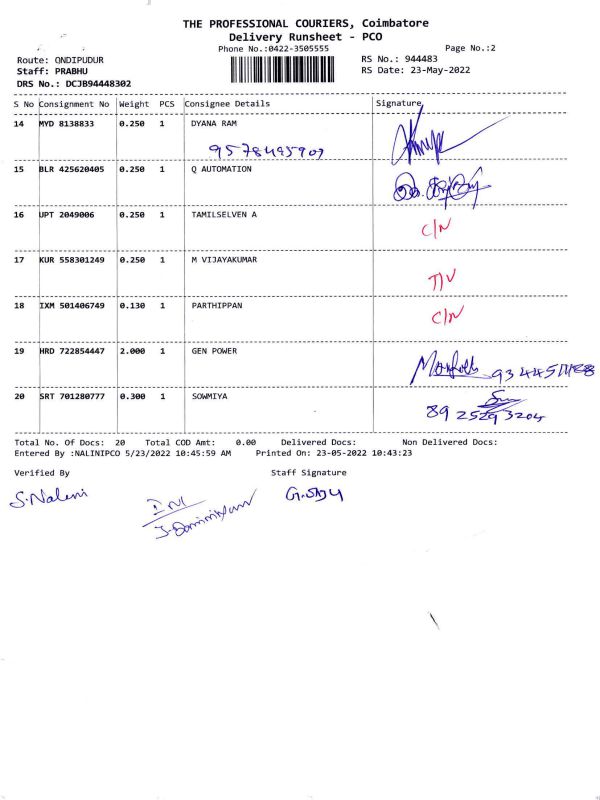 THE PROFESSIONAL COURIERS, Coimbatore
Delivery Runsheet - PCO
Phone No.:0422-3505555 Page No.:2
Route: ONDIPUDUR RS No.: 944483
Staff: PRABHU RS Date: 23-May-2022
DRS No.: DCJB94448302
S No Consignment No Weight PCS Consignee Details Signature
14 MYD 8138833 0.250 1 DYANA RAM
9578495907
15 BLR 425620405 0.250 1 Q AUTOMATION
16 UPT 2049006 0.250 1 TAMILSELVEN A
C/N
17 KUR 558301249 0.250 1 M VIJAYAKUMAR
18 IXM 501406749 0.130 1 PARTHIPPAN
C/N
19 HRD 722854447 2.000 1 GEN POWER
20 SRT 701280777 0.300 1 SOWMIYA
89 25293204
Total No. Of Docs: 20 Total COD Amt: 0.00 Delivered Docs: Non Delivered Docs:
Entered By :NALINIPCO 5/23/2022 10:45:59 AM Printed On: 23-05-2022 10:43:23
Verified By Staff Signature
S.Nalini